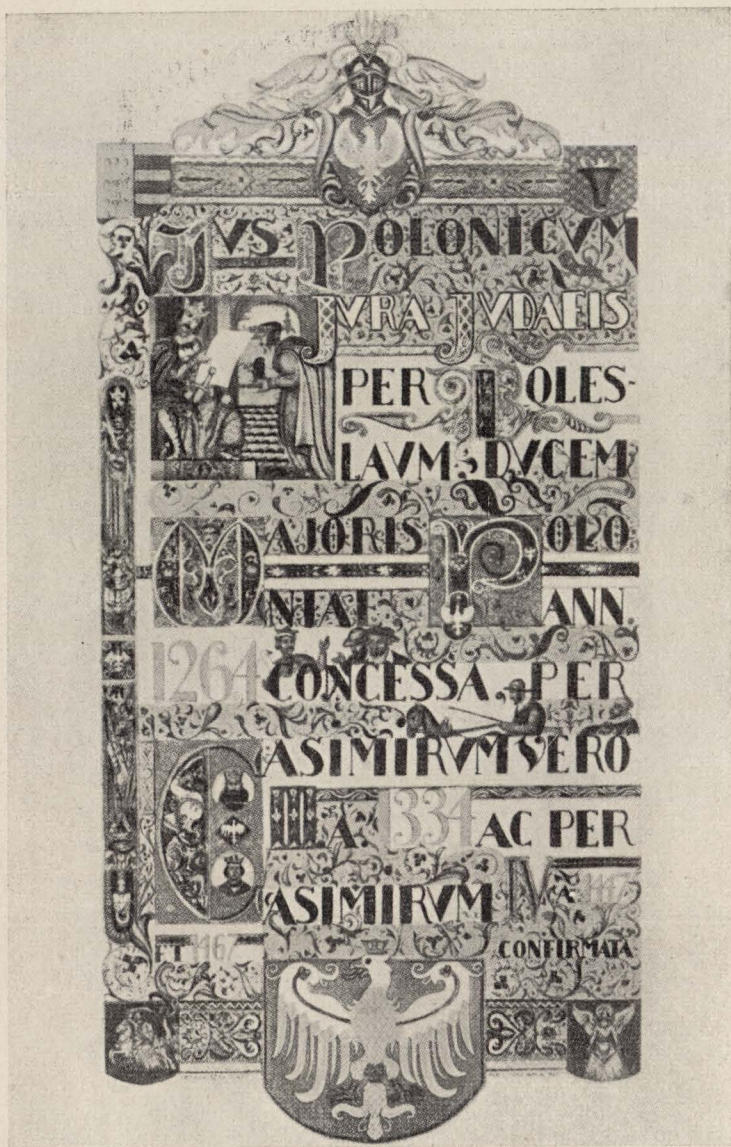 JVS POLONICVM
JVRA JVDAEIS
PER BOLES-
LAVM DVCEM
MAJORIS POLO
NIAE P ANN.
1264 CONCESSA, PER
CASIMIRVM VERO
III A. 1334 AC PER
CASIMIRVM IV 1447
ET 1467 CONFIRMATA